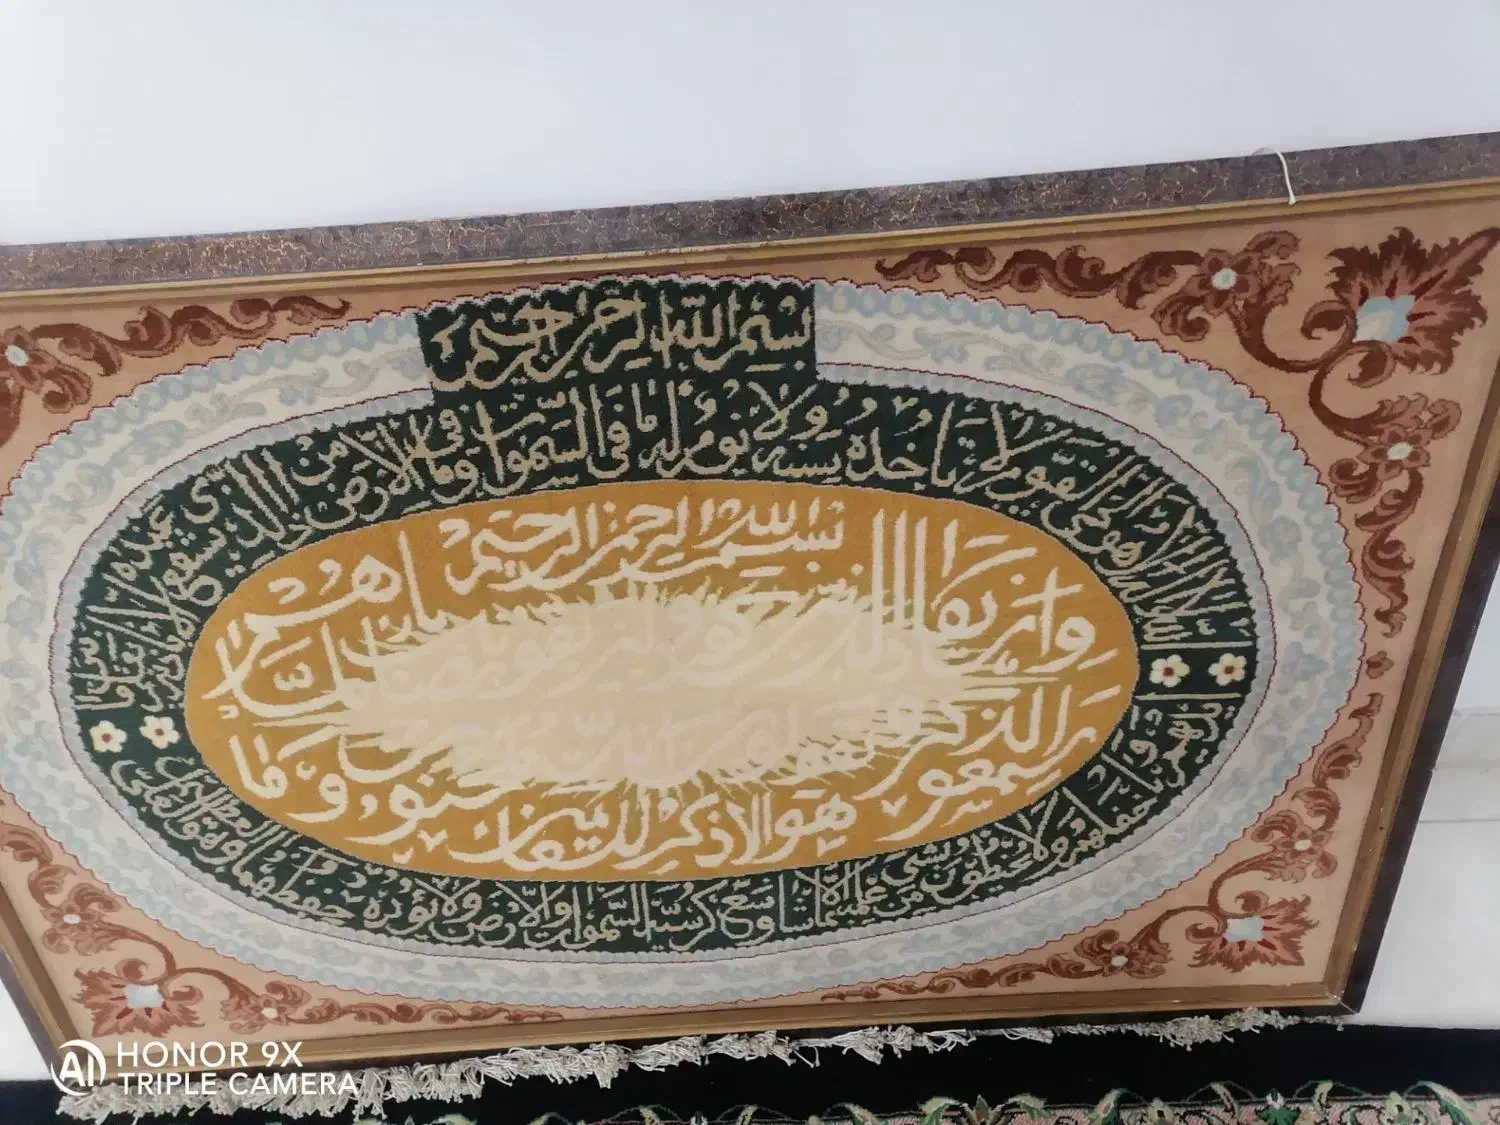 بسم الله الرحمن الرحيم
الله لا اله الا هو الحي القيوم لا تأخذه سنة ولا نوم له ما في السموات وما في الارض من ذا الذي يشفع عنده الا باذنه يعلم ما
ايديهم وما خلفهم ولا يحيطون بشيء من علمه الا بما شاء وسع كرسيه السموات والارض ولا يؤده حفظهما وهو العلي العظيم
بسم الله الرحمن الرحيم
وان يكاد الذين
بابصارهم لما
سمعوا الذكر
لمجنون وما
هو الا ذكر للعالمين
HONOR 9X
TRIPLE CAMERA
AI